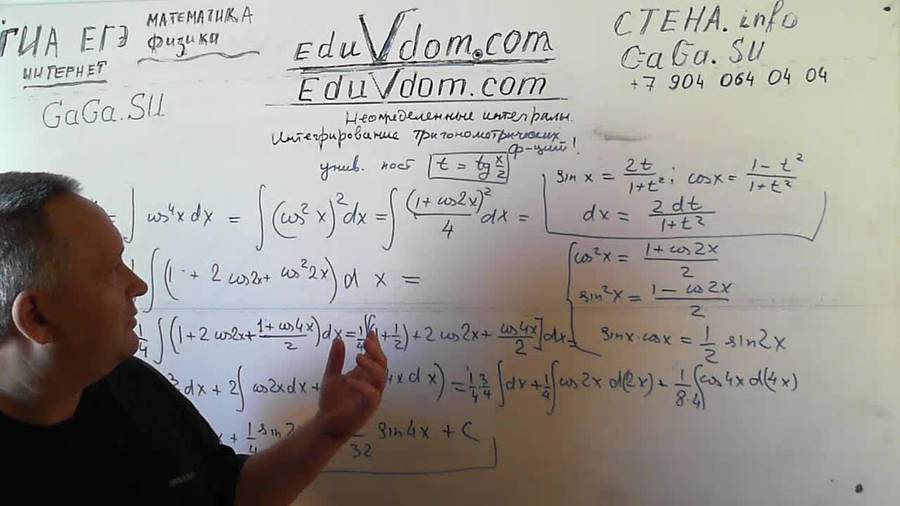 ГИА ЕГЭ
МАТЕМАТИКА
физики
ИНТЕРНЕТ
GaGa.SU
EduVdom.com
EduVdom.com
СТЕНА.info
GaGa.SU
+7 904 064 04 04
Неопределенные интегралы.
Интегрирование тригонометрических
ф-ций!
унив. пост t = tg x/2
sin x = 2t/(1+t²); cos x = (1-t²)/(1+t²)
dx = 2dt/(1+t²)
= ∫ cos⁴x dx = ∫(cos²x)²dx = ∫ (1+cos2x)²/4 dx =
∫(1 + 2cos2x + cos²2x) d x =
cos²x = (1+cos2x)/2
sin²x = (1-cos2x)/2
sinx·cosx = 1/2 sin2x
1/4 ∫(1+2cos2x+(1+cos4x)/2)dx = 1/4 +1/2)+2cos2x+ cos4x/2]dx=
dx + 2∫cos2xdx+ 4x dx) = 1/4 3/4 ∫dx+1/4∫cos2x d(2x) + 1/(8·4) ∫cos4x d(4x)
x + 1/4 sin2 /32 sin4x + C